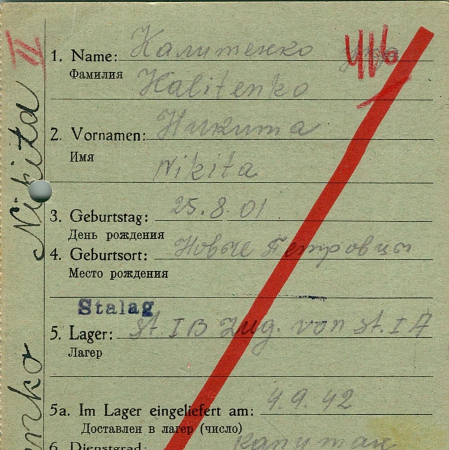 II
1. Name: Калитенко
Фамилия
Kalitenko
2. Vornamen: Никита
Имя
Nikita
3. Geburtstag: 25.8.01
День рождения
4. Geburtsort: Новые Петровцы
Место рождения
Stalag
5. Lager: St. I B Zug. von St. I A
Лагер
5a. Im Lager eingeliefert am: 4.9.42
Доставлен в лагер (число)
6. Dienstgrad: капитан
enko Nikita